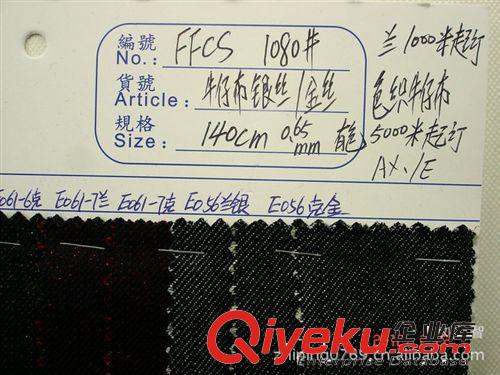 編號 No.: FFCS 1080#
貨號 Article: 牛仔布银丝/金丝
規格 Size: 140cm 0.65mm 有
兰1000米起订
色织牛仔布
5000米起订
AX./E
E061-6克 E061-7兰 E061-7克 E056兰银 E056克金
Qiyeku.com
企业库
Enterprise Database